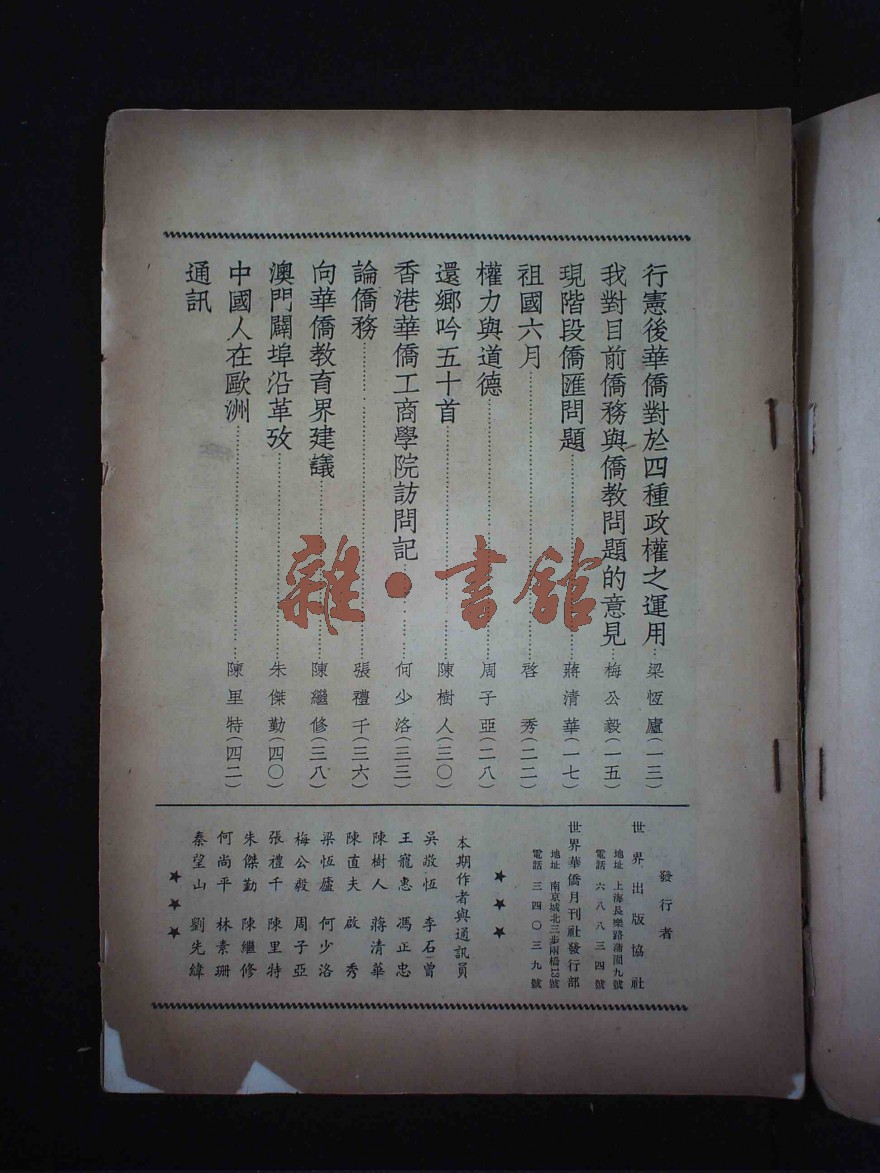 行憲後華僑對於四種政權之運用…梁恆廬(一三)
我對目前僑務與僑教問題的意見…梅公毅(一五)
現階段僑匯問題…蔣清華(一七)
祖國六月…啓秀(二二)
權力與道德…周子亞(二八)
還鄉吟五十首…陳樹人(三〇)
香港華僑工商學院訪問記…何少洛(三三)
論僑務…張禮千(三六)
向華僑教育界建議…陳繼修(三八)
澳門闢埠沿革攷…朱傑勤(四〇)
中國人在歐洲…陳里特(四二)
通訊
發行者
世界出版協社
地址 上海長樂路蒲園九號
電話 六八八三四號
世界華僑月刊社發行部
地址 南京城北三步兩橋13號
電話 三四〇三九號
★★★
本期作者與通訊員
吳敬恆 李石曾
王寵惠 馮正忠
陳樹人 蔣清華
陳直夫 啟秀
梁恆廬 何少洛
梅公毅 周子亞
張禮千 陳里特
朱傑勤 陳繼修
何尚平 林素珊
秦望山 劉先緯
★★★
雜·書館